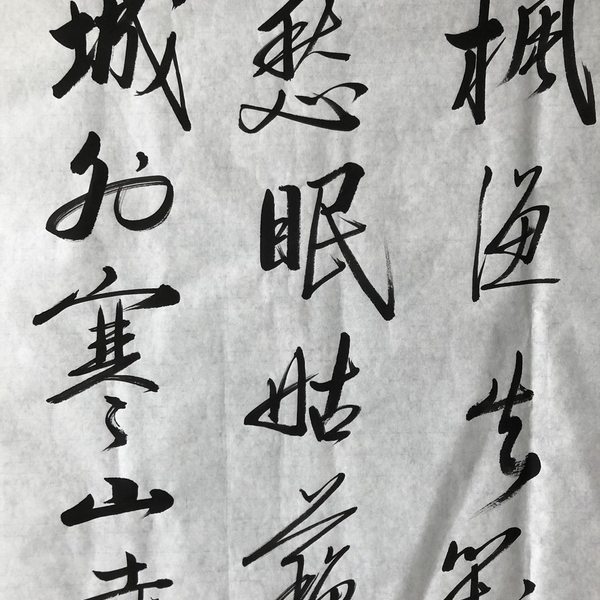 楓漁火對
愁眠姑蘇
城外寒山寺